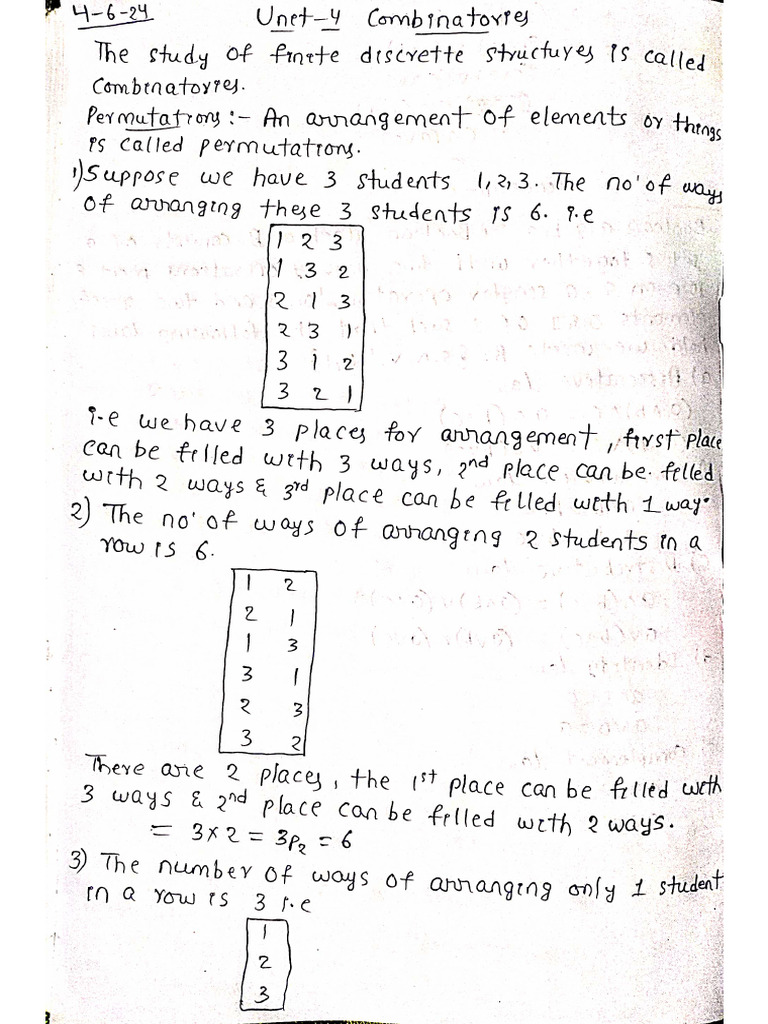 4-6-24 Unit-4 Combinatories
The study of finite discrette structures is called
Combinatories.
Permutations :- An arrangement of elements or things
is called permutations.
1) Suppose we have 3 students 1, 2, 3. The no' of ways
of arranging these 3 students is 6. i.e
1 2 3
1 3 2
2 1 3
2 3 1
3 1 2
3 2 1
i.e we have 3 places for arrangement, first place
can be filled with 3 ways, 2nd place can be filled
with 2 ways & 3rd place can be filled with 1 way.
2) The no' of ways of arranging 2 students in a
row is 6.
1 2
2 1
1 3
3 1
2 3
3 2
There are 2 places, the 1st place can be filled with
3 ways & 2nd place can be filled with 2 ways.
= 3x2 = 3P2 = 6
3) The number of ways of arranging only 1 student
in a row is 3 i.e
1
2
3